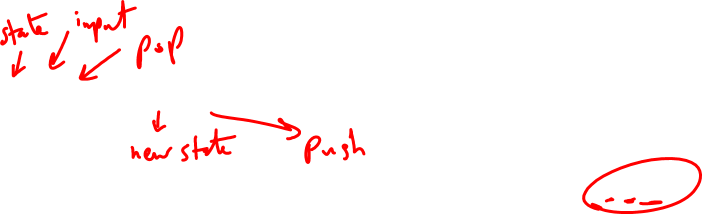 state input
pop
new state push